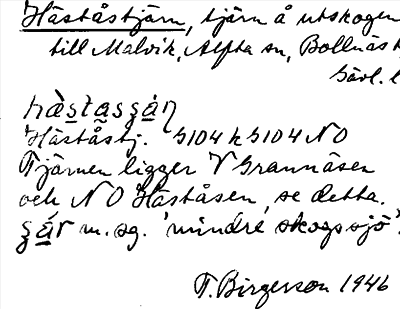 Häståstjärn, tjärn å utskogen
till Malvik, Alfta sn, Bollnäs
Gävl. l
hästasgáʹŋ
Häståstj. G104 k G104 NO
Tjärnen ligger V Grannåsen
och NO Häståsen, se detta.
gáʹr m. sg. 'mindre skogssjö'.
T. Birgerson 1946